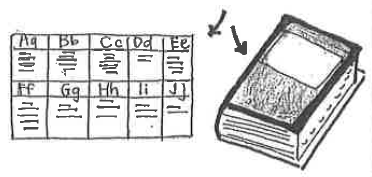 Aa Bb Cc Dd Ee
Ff Gg Hh Ii Jj